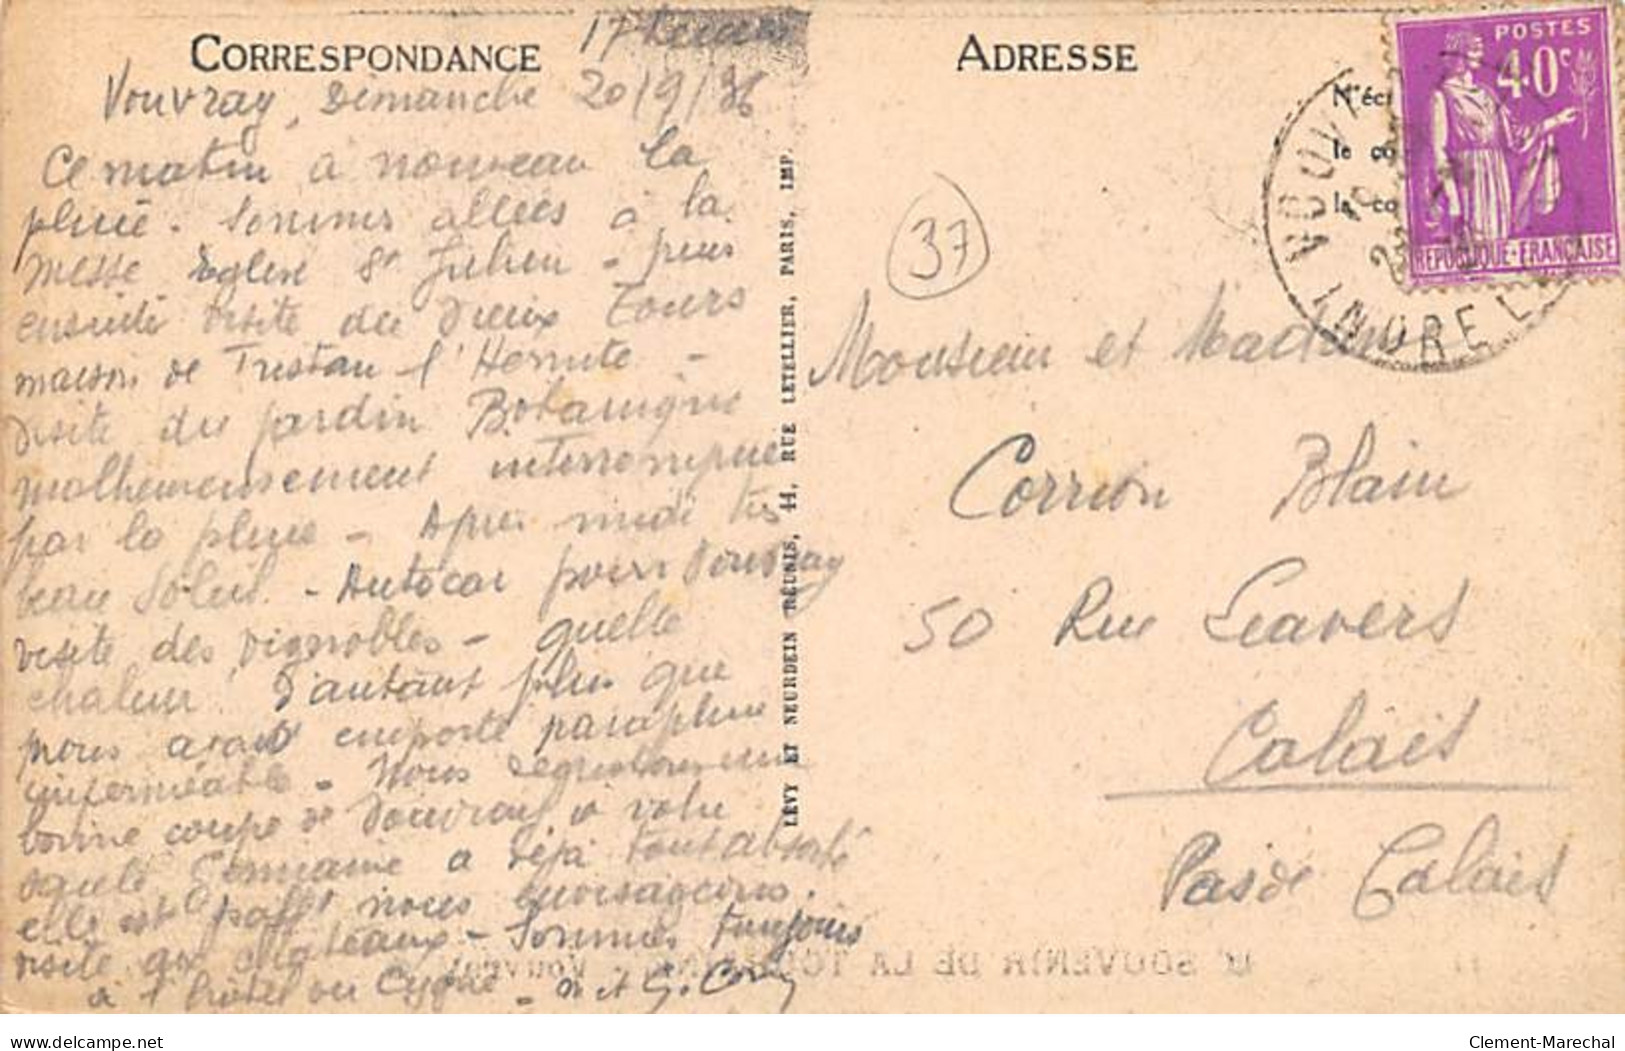 CORRESPONDANCE
17
Vouvray, Dimanche 20/9/36
Ce matin à nouveau la
pluie. Sommes allées à la
messe Eglise St Julien - puis
ensuite visite du Vieux Tours
maison de Tristan l'Hermite -
visite du jardin Botanique
malheureusement interrompue
par la pluie - Après midi très
beau Soleil. - Autocar pour Vouvray
visite des vignobles - quelle
chaleur! d'autant plus que
nous avons emporté parapluie
imperméable - Nous dégustons une
bonne coupe de Vouvray à votre
santé Germaine a déjà tout absorbé
elle est paff! nous envisageons
visite aux châteaux - Sommes toujours
à l'hôtel du Cygne -
LÉVY ET NEURDEIN RÉUNIS, 44, RUE LETELLIER, PARIS, IMP.
ADRESSE
N'écri
le co
la co
POSTES
40c
REPUBLIQUE-FRANÇAISE
VOUVRAY
INDRE
37
Monsieur et Madame
Corrion Blain
50 Rue Leavers
Calais
Pas de Calais
LE SOUVENIR DE LA TOURAINE - VOUVRAY
delcampe.net
Clement-Marechal